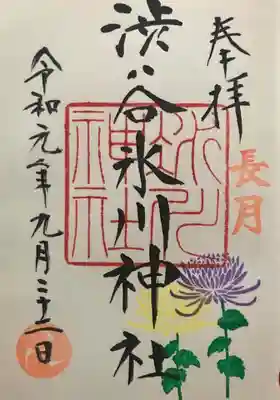 奉拝
長月
渋谷氷川神社
令和元年九月二十二日